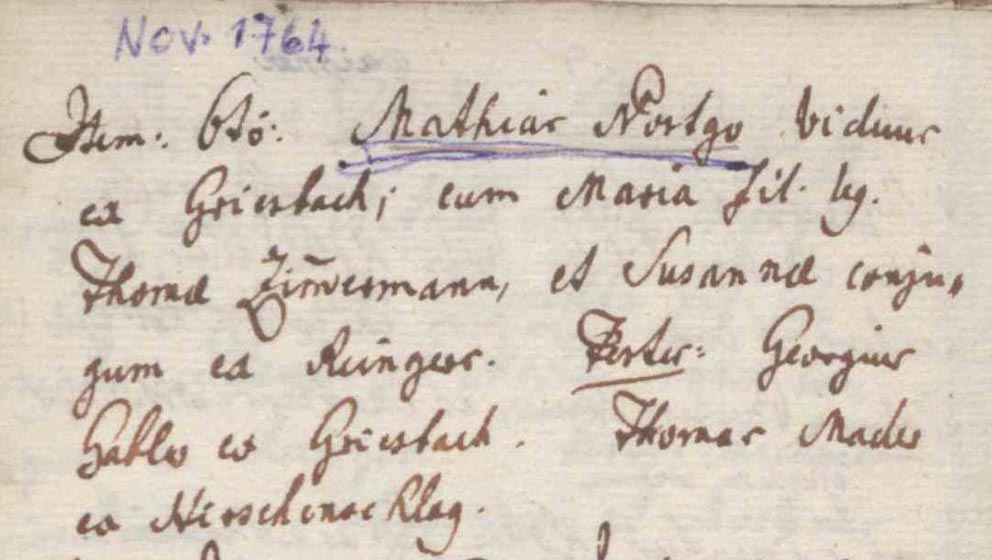 Nov. 1764.
Item: 6tô: Mathias Nortgo Viduus
ex Griesbach; cum Maria fil. leg.
Thomæ Zim̄ermann, et Susannæ conju„
gum ex Ruingers. Testes: Georgius
Habler ex Griesbach. Thomas Mader
ex Hirschenschlag.